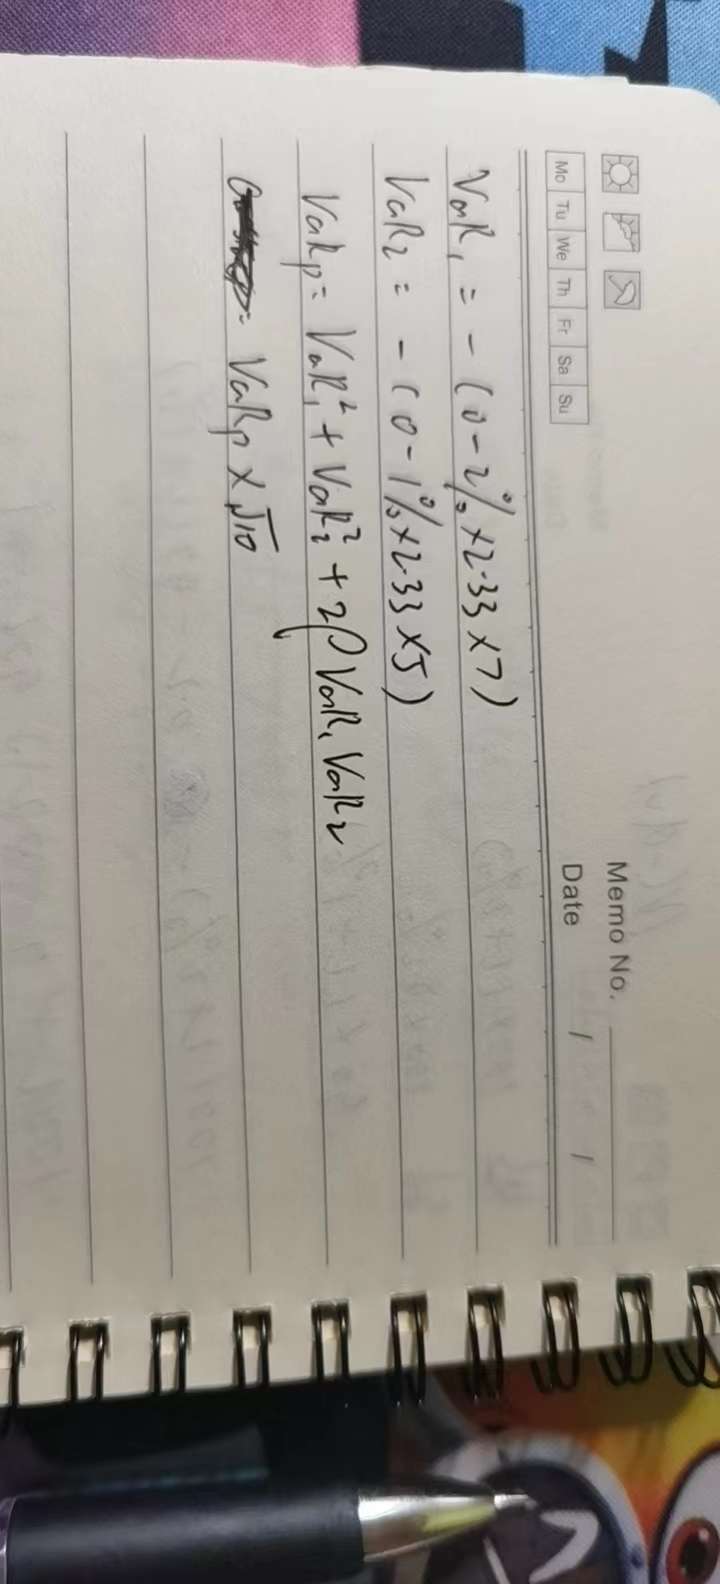 Memo No.
Mo Tu We Th Fr Sa Su
Date / /
VaR₁ = - (0 - 2% × 2.33 × 7)
VaR₂ = - (0 - 1% × 2.33 × 5)
VaRp = VaR₁² + VaR₂² + 2ρ VaR₁ VaR₂
= VaRp × √10